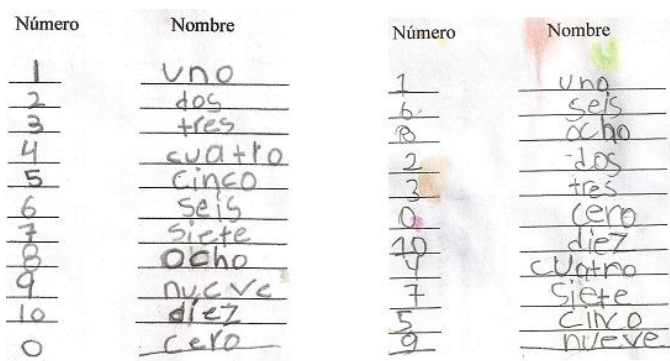 Número Nombre
1 uno
2 dos
3 tres
4 cuatro
5 cinco
6 seis
7 siete
8 ocho
9 nueve
10 diez
0 cero
Número Nombre
1 uno
6 seis
8 ocho
2 dos
3 tres
0 cero
10 diez
4 cuatro
7 siete
5 cinco
9 nueve